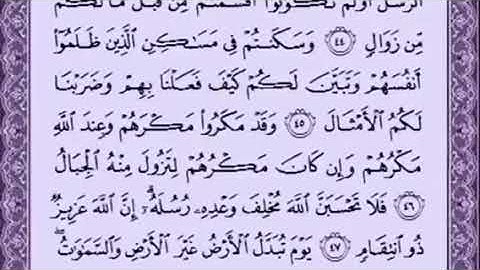 ٱلرُّسُلَ أَوَلَمْ تَكُونُوٓا۟ أَقْسَمْتُم مِّن قَبْلُ مَا لَكُم
مِّن زَوَالٍ ٤٤ وَسَكَنتُمْ فِى مَسَٰكِنِ ٱلَّذِينَ ظَلَمُوٓا۟
أَنفُسَهُمْ وَتَبَيَّنَ لَكُمْ كَيْفَ فَعَلْنَا بِهِمْ وَضَرَبْنَا
لَكُمُ ٱلْأَمْثَالَ ٤٥ وَقَدْ مَكَرُوا۟ مَكْرَهُمْ وَعِندَ ٱللَّهِ
مَكْرُهُمْ وَإِن كَانَ مَكْرُهُمْ لِتَزُولَ مِنْهُ ٱلْجِبَالُ
٤٦ فَلَا تَحْسَبَنَّ ٱللَّهَ مُخْلِفَ وَعْدِهِۦ رُسُلَهُۥٓ ۗ إِنَّ ٱللَّهَ عَزِيزٌ
ذُو ٱنتِقَامٍ ٤٧ يَوْمَ تُبَدَّلُ ٱلْأَرْضُ غَيْرَ ٱلْأَرْضِ وَٱلسَّمَٰوَٰتُ ۖ